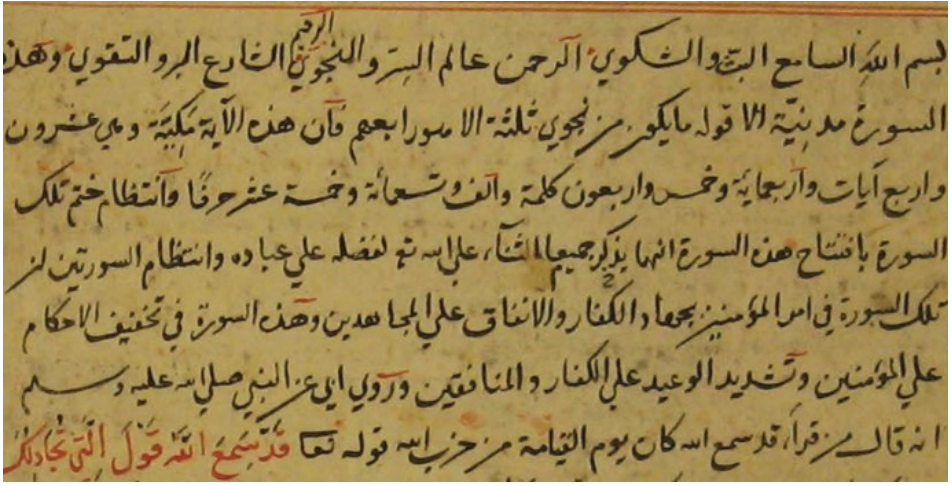 بسم الله السامع البث والشكوي الرحمن عالم السر والنجوي الرحيم الشارع البر والتقوي وهذه
السورة مدنية الا قوله مايكون من نجوي ثلثة الا هو رابعهم فان هذه الآية مكية وهي عشرون
واربع آيات واربعماية وخمس واربعون كلمة والف وتسعمائة وخمسة عشر حرفا وانتظام ختم تلك
السورة بافتتاح هذه السورة انهما يذكر جميعا الثناء علي الله تع لفضله علي عباده وانتظام السورتين لن
تلك السورة في امر المؤمنين بجهاد الكفار والانفاق علي المجاهدين وهذه السورة في تخفيف الاحكام
علي المؤمنين وتشديد الوعيد علي الكفار والمنافقين وروي ابي عن النبي صلي الله عليه وسلم
انه قال من قرأ، قد سمع الله كان يوم القيامة من حزب الله قوله تعا قد سمع الله قول التي تجادلك